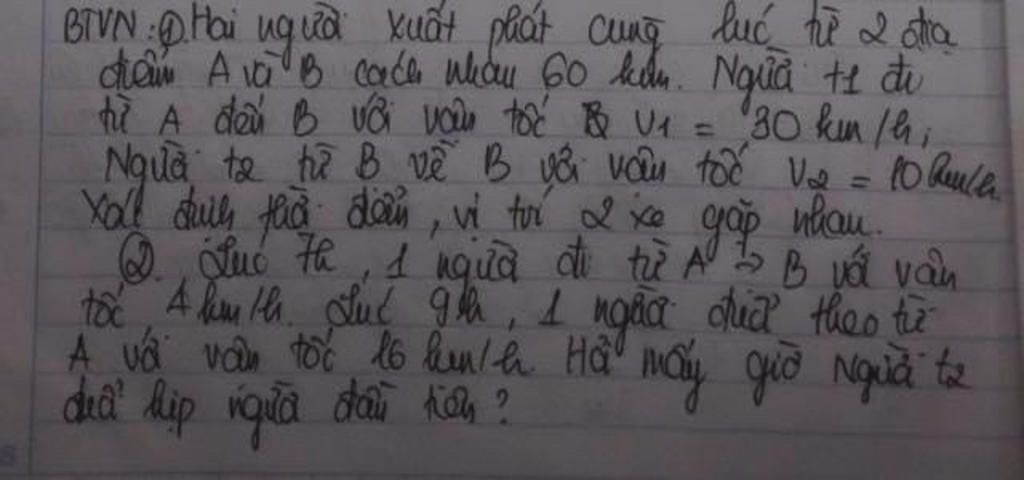 BTVN: ①. Hai người xuất phát cùng lúc từ 2 địa
điểm A và B cách nhau 60 km. Người t1 đi
từ A đến B với vận tốc V1 = 30 km/h;
Người t2 từ B về B với vận tốc V2 = 10 km/h.
Xác định thời điểm, vị trí 2 xe gặp nhau.
②. Lúc 7h, 1 người đi từ A → B với vận
tốc 4 km/h. Lúc 9h, 1 người đuổi theo từ
A với vận tốc 16 km/h. Hỏi mấy giờ Người t2
đuổi kịp người đầu tiên?